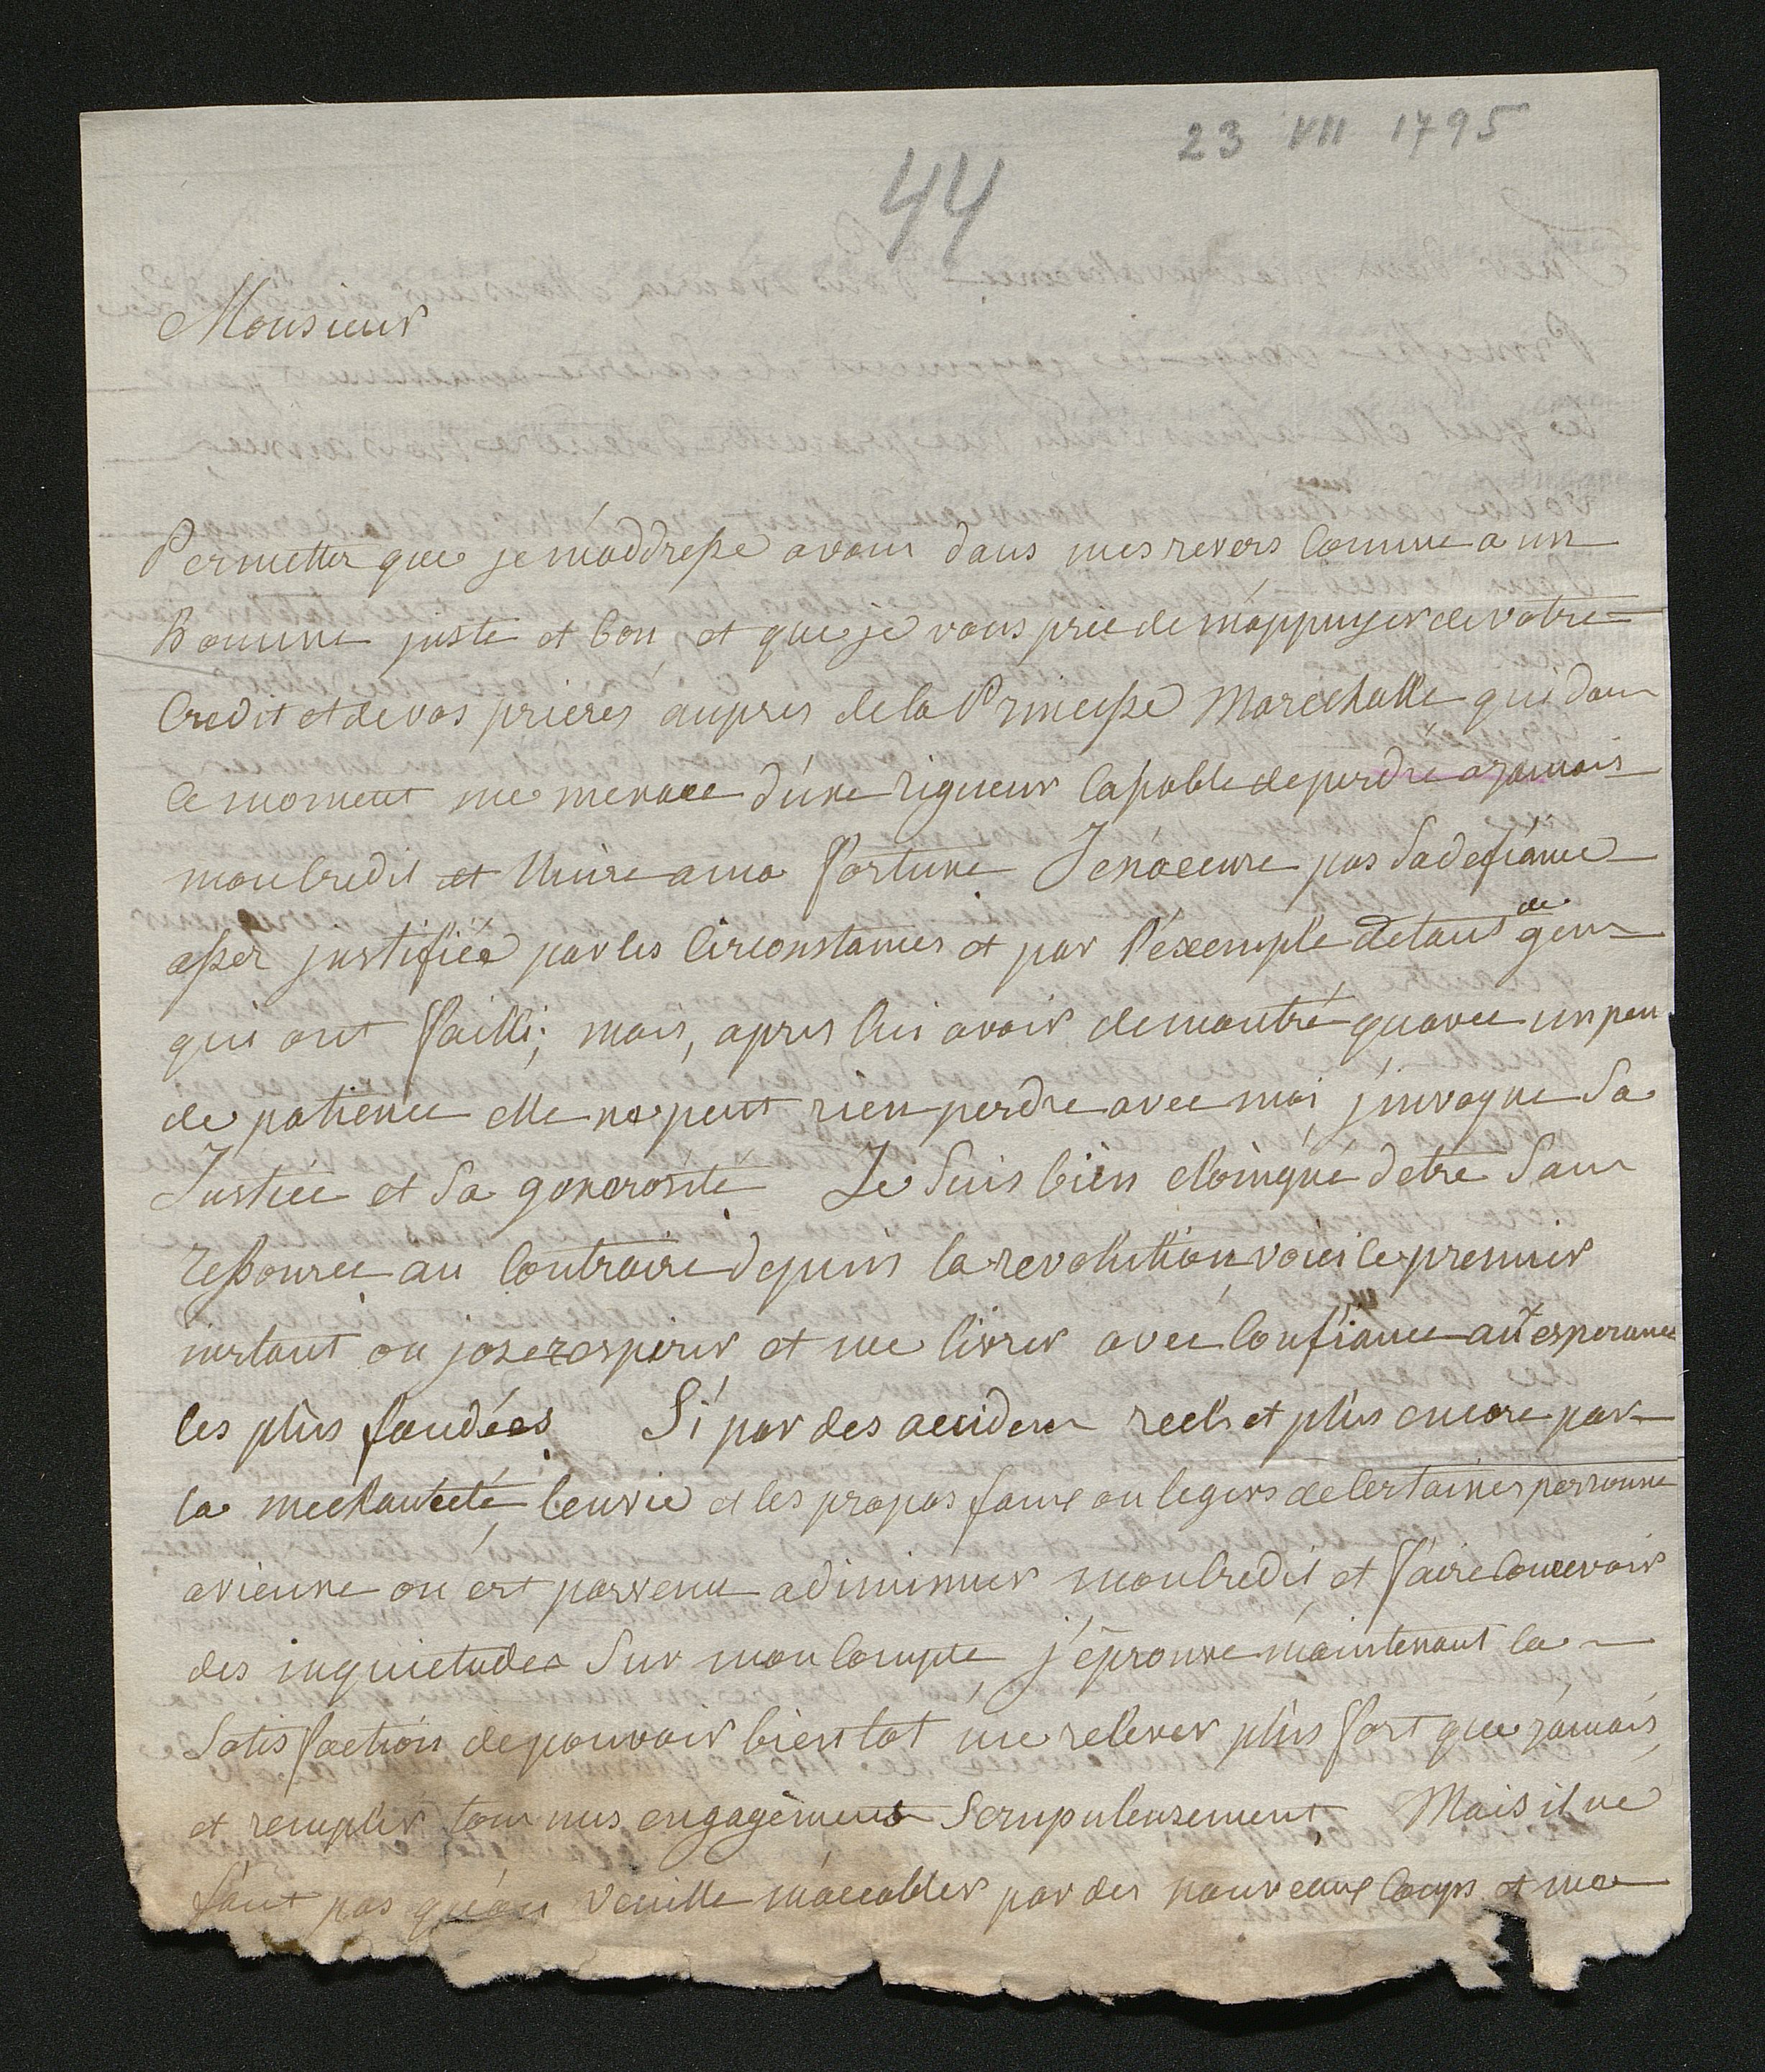 23 VII 1795
44
Monsieur
Permetter que je m'addresse avous dans mes revers comme a un
homme juste et bon, et que je vous prie de m'appuyer de votre
credit et de vos prieres aupres de la Princesse Marechalle qui dans
ce moment me menace d'une rigueur capable de perdre a jamais
mon credit et Nuire a ma fortune Je n'accuse pas sa defiance
assez justifiée par les circonstances et par l'éxemple de tant de gens
qui ont failli; mais, apres lui avoir demontré qu'avec un peu
de patience elle ne peut rien perdre avec moi, j'invoque sa
Justice et sa generosité Je suis bien eloingné d'etre sans
ressource au contraire depuis la revolution voici le premier
instant ou j'ose respirer et me livrer avec confiance aux esperances
les plus fondées. Si par des accidens reels et plus encore par
la mechanceté, l'envie et les propos faux ou legers de certaines personne
a vienne on est parvenu a diminuer mon credit, et faire concevoir
des inquietudes sur mon compte, j'éprouve maintenant la
satisfaction de pouvoir bientot me relever plus fort que jamais,
et remplir tous mes engagèments scrupuleusement, Mais il ne
faut pas qu'on veuille m'accabler par des nouveaux coups et me